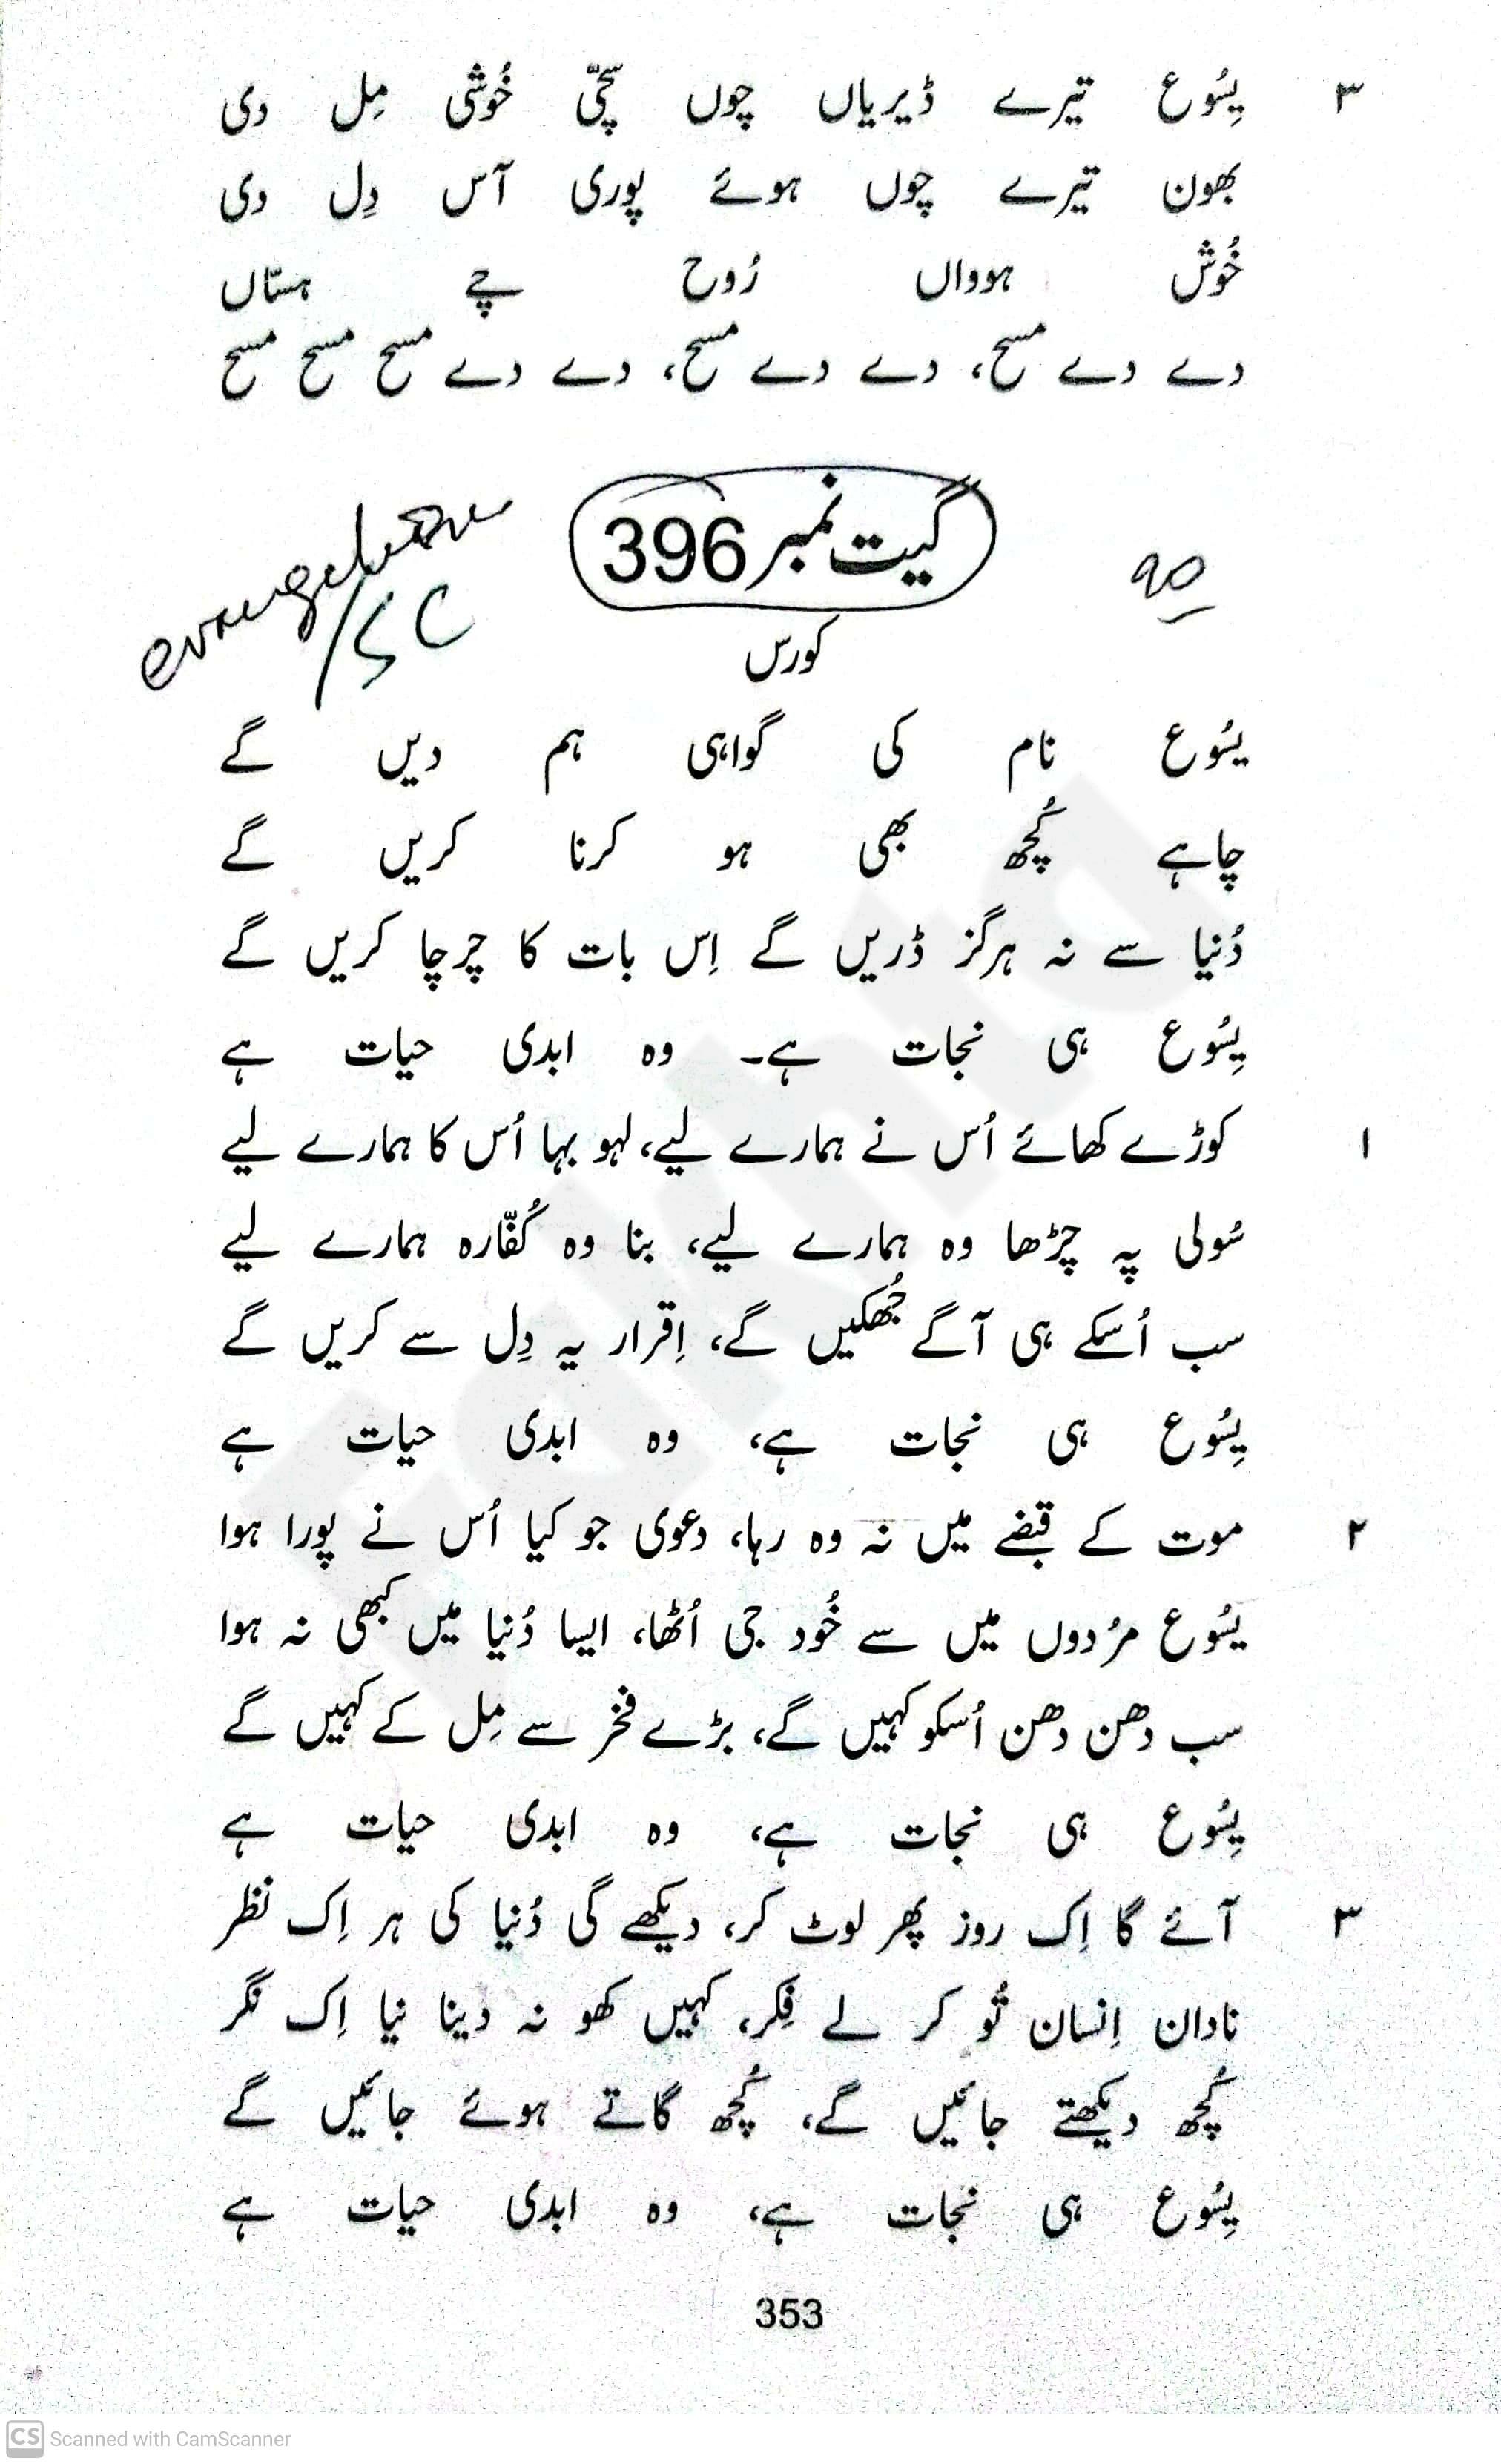 ۳ یِسُوع تیرے ڈیریاں چوں سچّی خُوشی مِل دی
بھون تیرے چوں ہوئے پوری آس دِل دی
خُوش ہوواں رُوح چے ہسّاں
دے دے مسح، دے دے مسح، دے دے مسح مسح مسح
گیت نمبر 396
evangelism
/SC
کورس
یسُوع نام کی گواہی ہم دیں گے
چاہے کُچھ بھی ہو کرنا کریں گے
دُنیا سے نہ ہرگز ڈریں گے اِس بات کا چرچا کریں گے
یِسُوع ہی نجات ہے۔ وہ ابدی حیات ہے
۱ کوڑے کھائے اُس نے ہمارے لیے، لہو بہا اُس کا ہمارے لیے
سُولی پہ چڑھا وہ ہمارے لیے، بنا وہ کُفّارہ ہمارے لیے
سب اُسکے ہی آگے جُھکیں گے، اِقرار یہ دِل سے کریں گے
یِسُوع ہی نجات ہے، وہ ابدی حیات ہے
۲ موت کے قبضے میں نہ وہ رہا، دعوی جو کیا اُس نے پورا ہوا
یسُوع مرُدوں میں سے خُود جی اُٹھا، ایسا دُنیا میں کبھی نہ ہوا
سب دھن دھن اُسکو کہیں گے، بڑے فخر سے مِل کے کہیں گے
یِسُوع ہی نجات ہے، وہ ابدی حیات ہے
۳ آئے گا اِک روز پھر لوٹ کر، دیکھے گی دُنیا کی ہر اِک نظر
نادان اِنسان تُو کر لے فِکر، کہیں کھو نہ دینا نیا اِک نگر
کُچھ دیکھتے جائیں گے، کُچھ گاتے ہوئے جائیں گے
یِسُوع ہی نجات ہے، وہ ابدی حیات ہے
353
CS Scanned with CamScanner